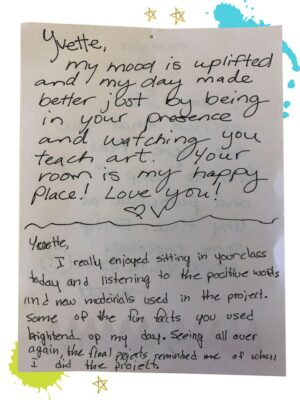 Yvette,
my mood is uplifted
and my day made
better just by being
in your presence
and watching you
teach art. Your
room is my happy
Place! Love you!
♡V
Yvette,
I really enjoyed sitting in your class
today and listening to the positive words
and new materials used in the project.
Some of the fun facts you used
brightend up my day. Seeing all over
again, the final projects reminded me of when
I did the project.